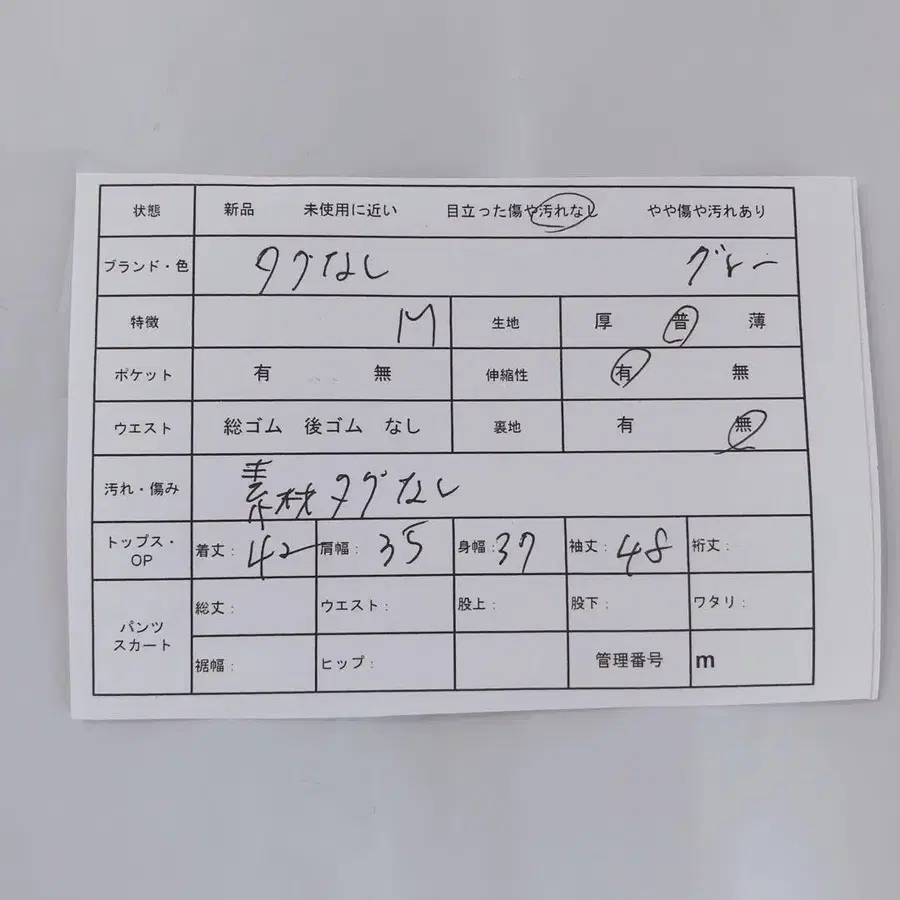 状態 新品 未使用に近い 目立った傷や汚れなし やや傷や汚れあり
ブランド・色 タグなし グレー
特徴 M 生地 厚 普 薄
ポケット 有 無 伸縮性 有 無
ウエスト 総ゴム 後ゴム なし 裏地 有 無
汚れ・傷み 素材タグなし
トップス・OP 着丈:42 肩幅:35 身幅:37 袖丈:48 裄丈:
パンツ スカート 総丈: ウエスト: 股上: 股下: ワタリ:
裾幅: ヒップ: 管理番号 m